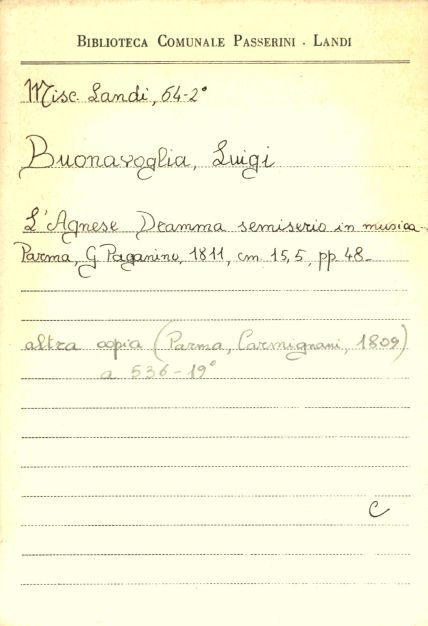 BIBLIOTECA COMUNALE PASSERINI - LANDI
Misc. Landi, 64-2°
Buonavoglia, Luigi
L'Agnese Dramma semiserio in musica.
Parma, G Paganino, 1811, cm 15,5, pp. 48-
altra copia (Parma, Carmignani, 1809)
a 536-19°
C